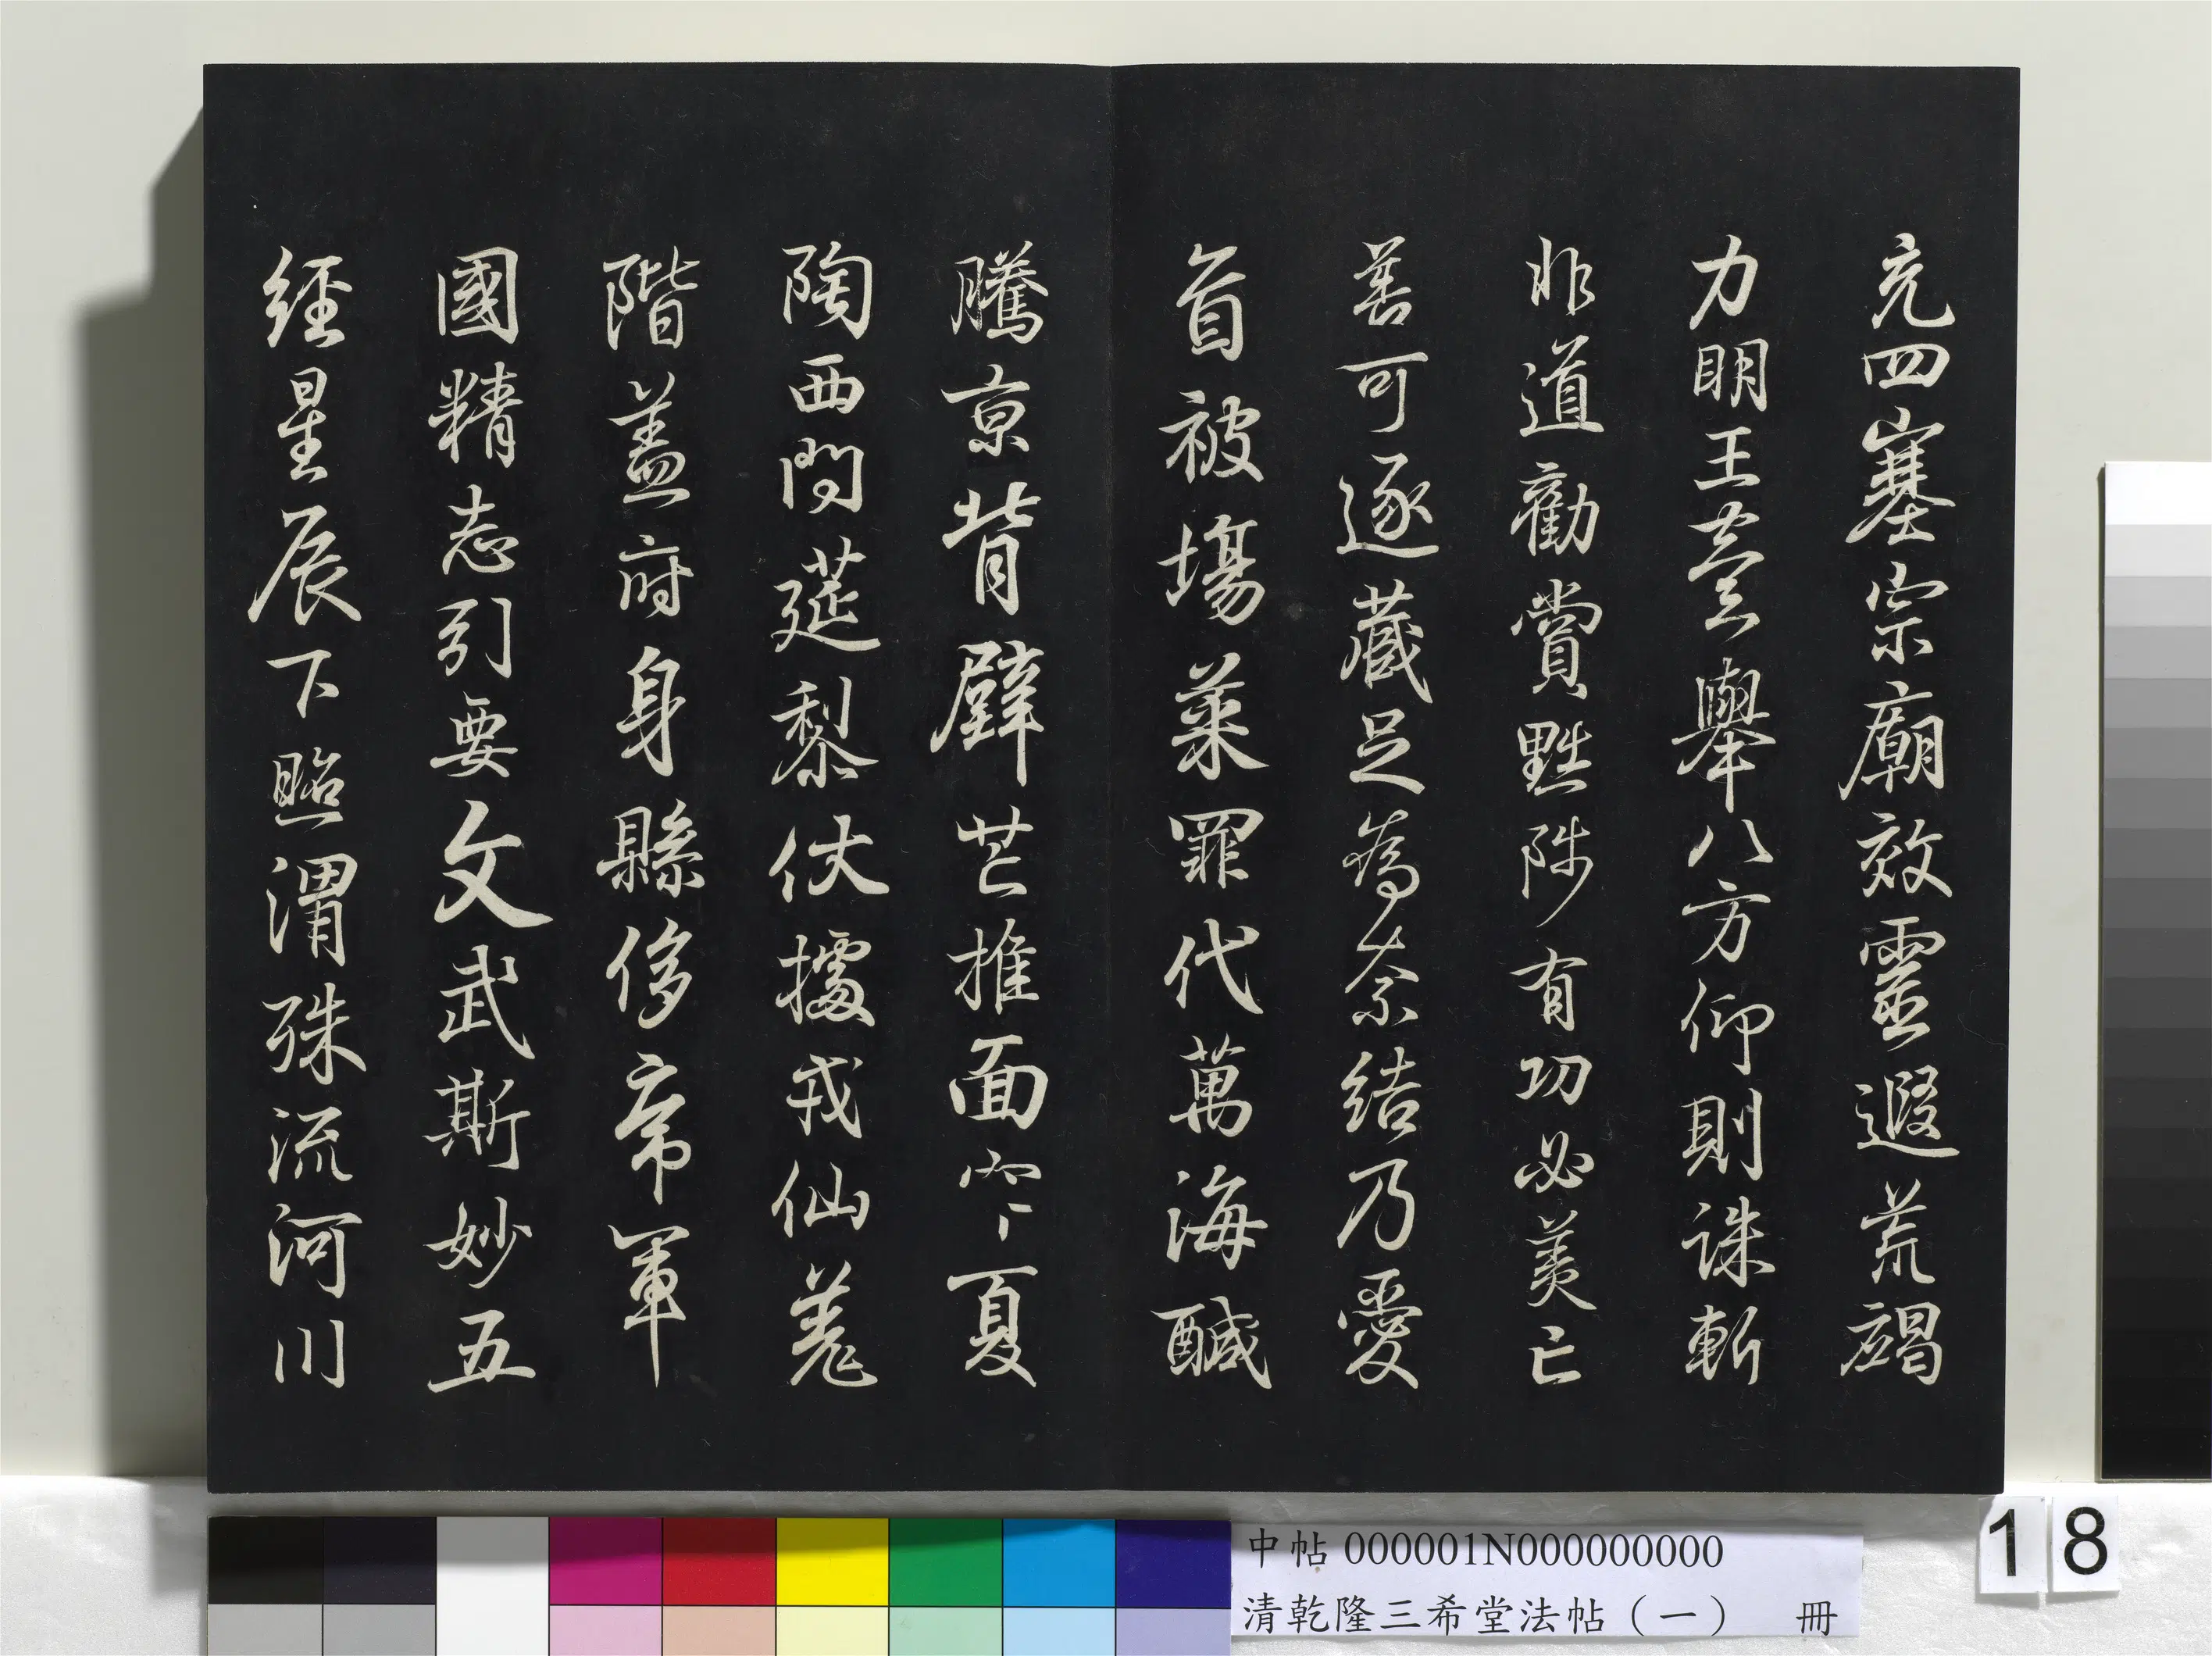 充四塞宗廟效靈遐荒竭
力明王臺舉八方仰則誅斬
非道勸賞黜陟有功必美亡
善可逐藏足為奈結乃愛
首被塲菜罪代萬海醎
騰京背芒推面夏
陶西門莚黎伏據戎仙羌
階蓋府身縣侈帝軍
國精志引要文武斯妙五
經星辰下照渭殊流河川
中帖 000001N000000000
清乾隆三希堂法帖（一） 冊
18